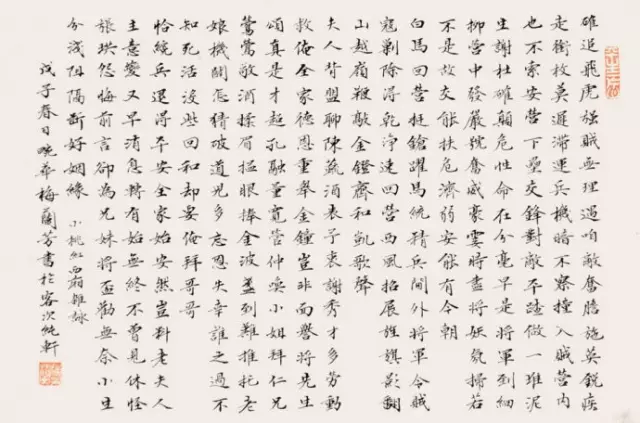 確追飛虎強賊無理過咱敵奮膽施英銳疾
走銜枚莫遲滯運兵機暗不察撞入賊營內
也不索安營下壘交鋒對敵平踏做一堆泥
生謝杜確顛危性命在分毫早是將軍到細
柳營中發嚴號奮威豪霎時盡將妖氛掃若
不是故交能扶危濟弱安能有今朝
白馬回營挺鎗躍馬統精兵閫外將軍令賊
寇剿除得乾淨速回營西風招展旌旗影翻
山越嶺鞭敲金鐙齊和凱歌聲
夫人背盟聊陳蔬酒表予衷謝秀才多勞動
救俺全家德恩重舉金鐘豈非面譽將先生
頌真是才超孔融量寬管仲喚小姐拜仁兄
鶯鶯敬酒揉眉搵眼捧金波盞到難推托老
娘機關怎猜破道兄多忘恩失幸誰之過不
知死活沒些回和却要俺拜哥哥
恰繞兵退得平安全家始安然豈料老夫人
主意變又早消息轉有始無終不曾見休怪
張珙怨悔前言卻為兄妹將盃勸無奈小生
分淺阻隔斷好姻緣 小桃紅西廂雜詠
戊子春日晚華梅蘭芳書於客次純軒